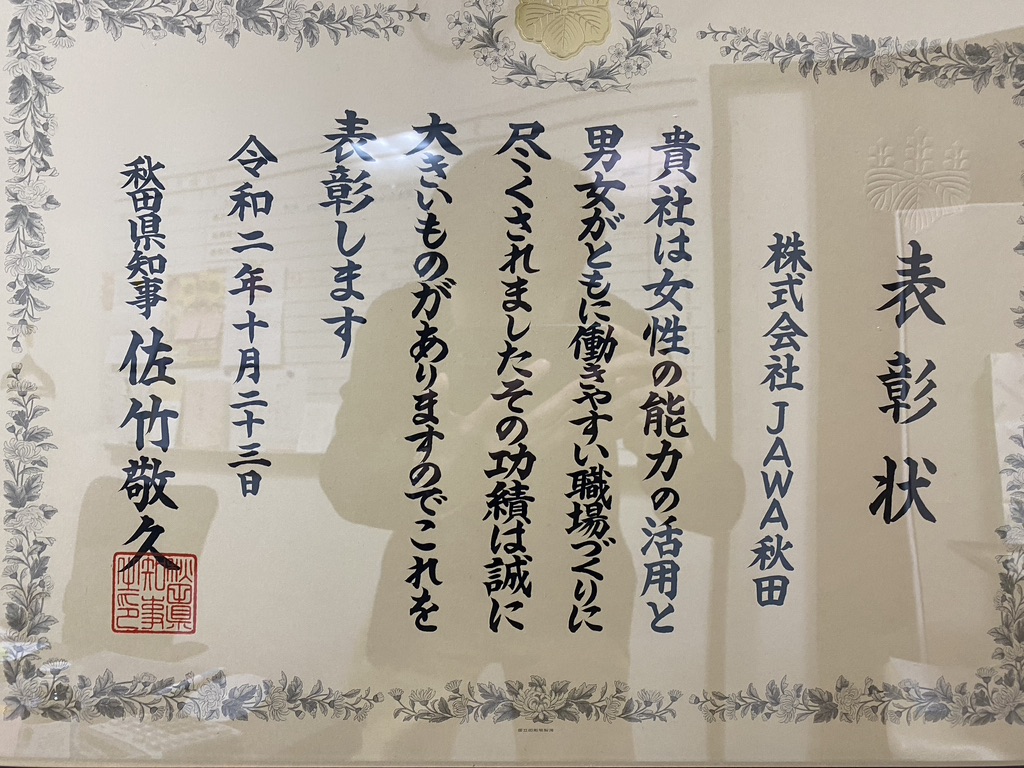 表彰状
株式会社JAWA秋田
貴社は女性の能力の活用と
男女がともに働きやすい職場づくりに
尽くされましたその功績は誠に
大きいものがありますのでこれを
表彰します
令和二年十月二十三日
秋田県知事 佐竹敬久
秋田県知事之印